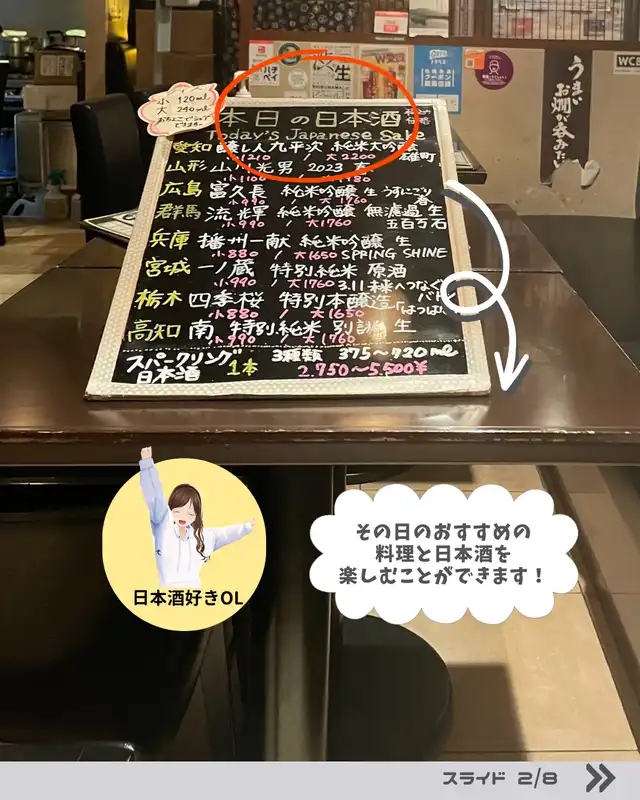 小 120ml
大 240ml
本日の日本酒
Today's Japanese Sake
愛知 醸し人九平次 純米大吟醸
小1210 / 大2200 雄町
山形 山川光男 2023
小1100
広島 富久長 純米吟醸 生 うすにごり
小990 / 大1760 春
群馬 流輝 純米吟醸 無濾過 生
小990 / 大1760 五百万石
兵庫 播州一献 純米吟醸 生
小880 / 大1650 SPRING SHINE
宮城 一ノ蔵 特別純米 原酒
小990 / 大1760 3.11
栃木 四季桜 特別本醸造
小880 / 大1650
高知 南 特別純米 別誂 生
小990 / 大1760
スパークリング 3種類 375〜720ml
日本酒 1本 2,750〜5,500¥
うまい
お燗が呑みたい
日本酒好きOL
その日のおすすめの
料理と日本酒を
楽しむことができます！
スライド 2/8